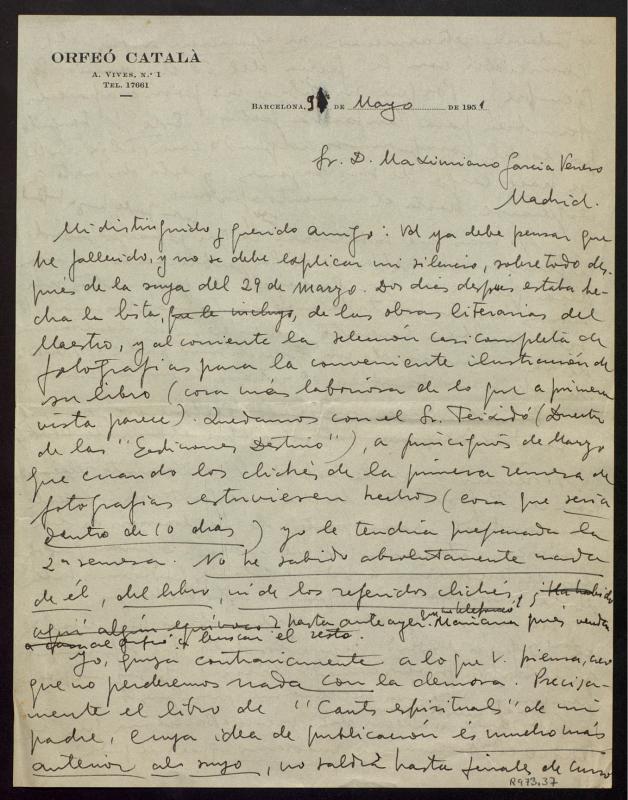 ORFEÓ CATALÀ
A. VIVES, N.º 1
TEL. 17661
BARCELONA, 9 DE Mayo DE 1951
Sr. D. Maximiano Garcia Venero
Madrid.
Mi distinguido y querido amigo: Vd ya debe pensar que
he fallecido, y no se debe explicar mi silencio, sobre todo des-
pués de la suya del 29 de marzo. Dos dias despues estaba he-
cha la lista, que le incluyo, de las obras literarias del
Maestro, y al corriente la selección casi completa de
fotografias para la conveniente ilustración de
su libro (cosa más laboriosa de lo que a primera
vista parece). Quedamos con el Sr. Teixidó (Director
de las "Ediciones Destino"), a principios de Marzo
que cuando los clichés de la primera remesa de
fotografias estuviesen hechos (cosa que seria
dentro de 10 dias) yo le tendria preparada la
2ª remesa. No he sabido absolutamente nada
de él, del libro, ni de los referidos clichés, ¿Ha habido
aquí algún equívoco? hasta anteayer. Mañana pués vendrá
a buscar el resto.
Yo, quiza contrariamente a lo que V. piensa, creo
que no perderemos nada con la demora. Precisa-
mente el libro de "Cants espirituals" de mi
padre, cuya idea de publicación és mucho más
anterior al suyo, no saldrá hasta finales de curso
R973,37